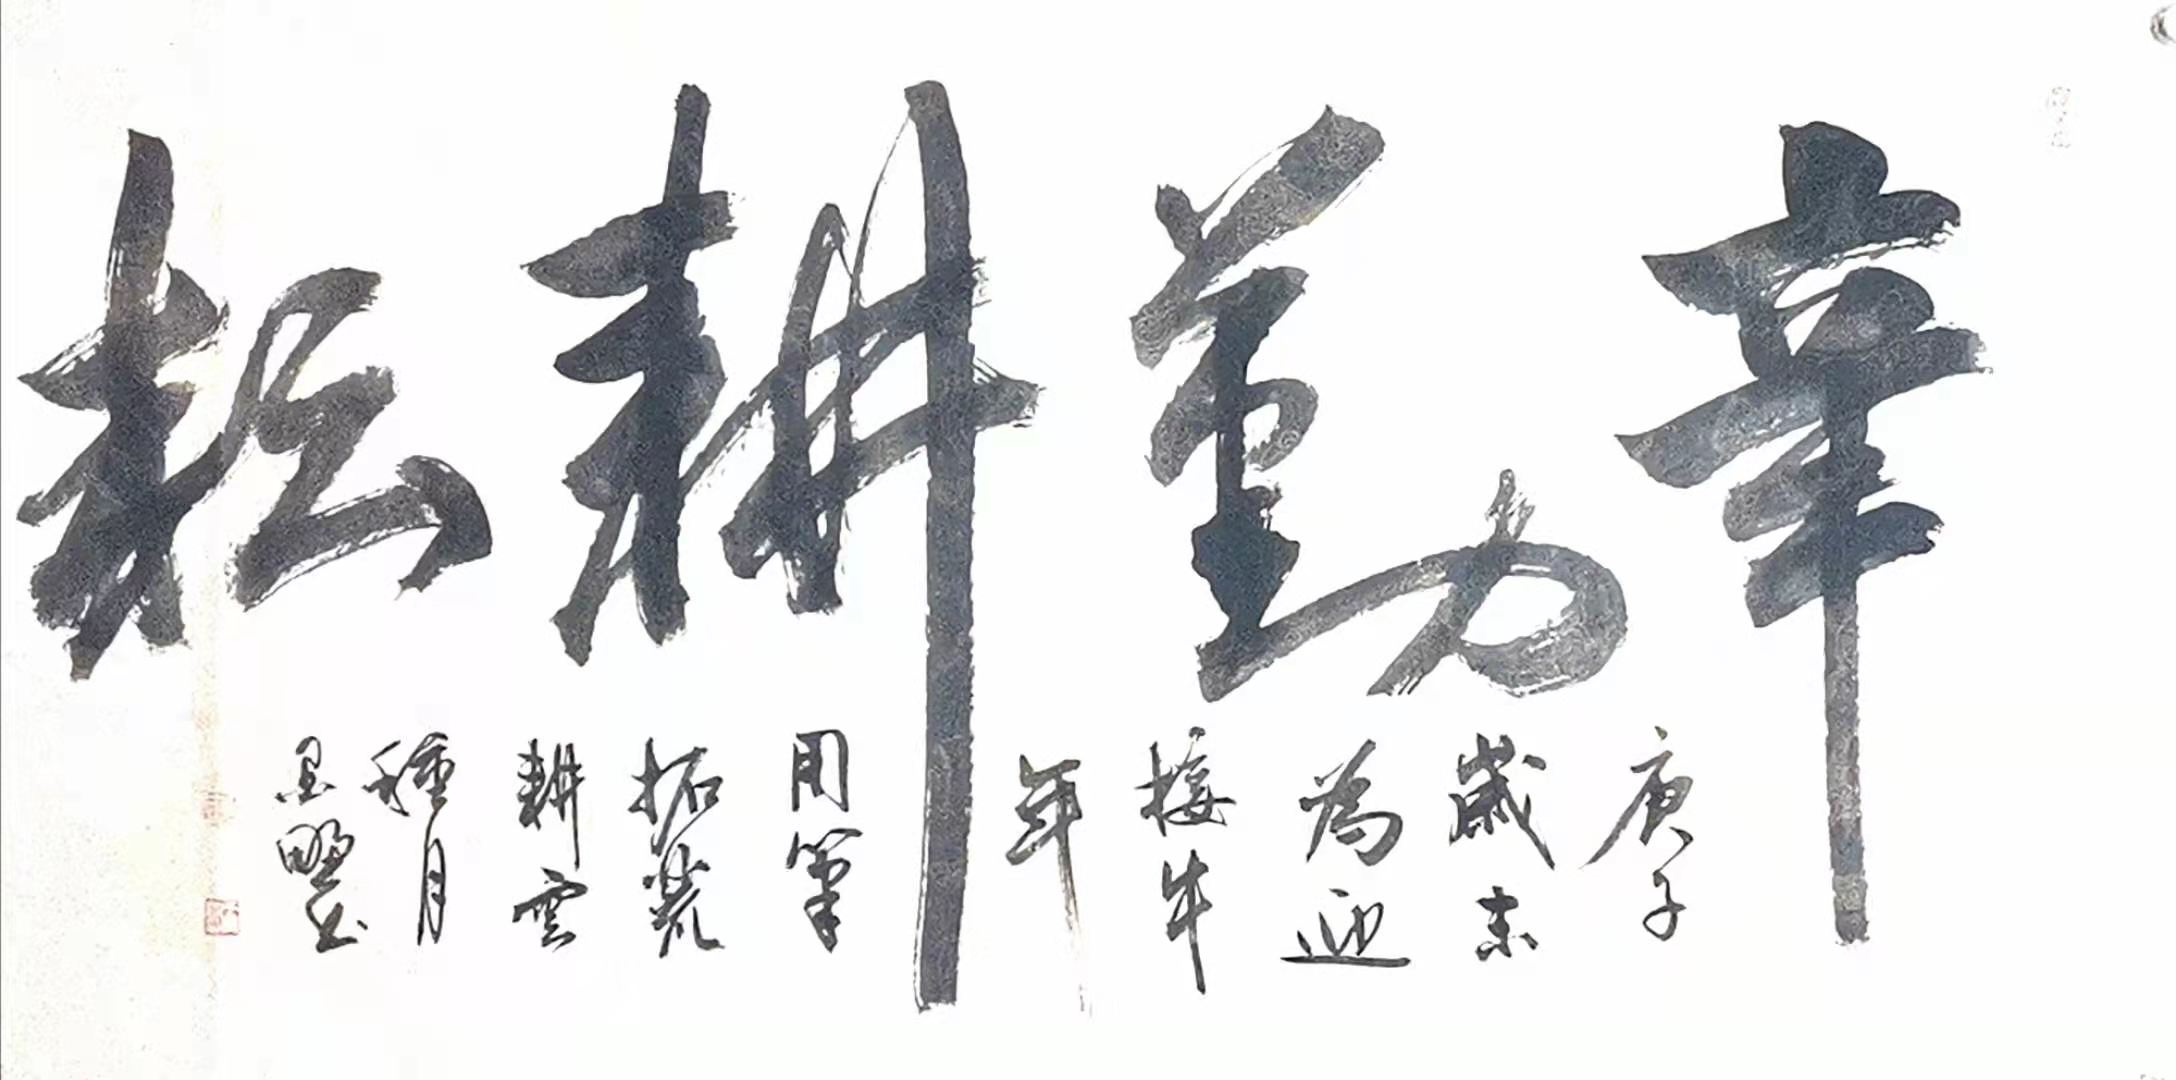 辛勤耕耘
庚子
歲末
為迎
接牛
年
用筆
拓荒
耕雲
種月